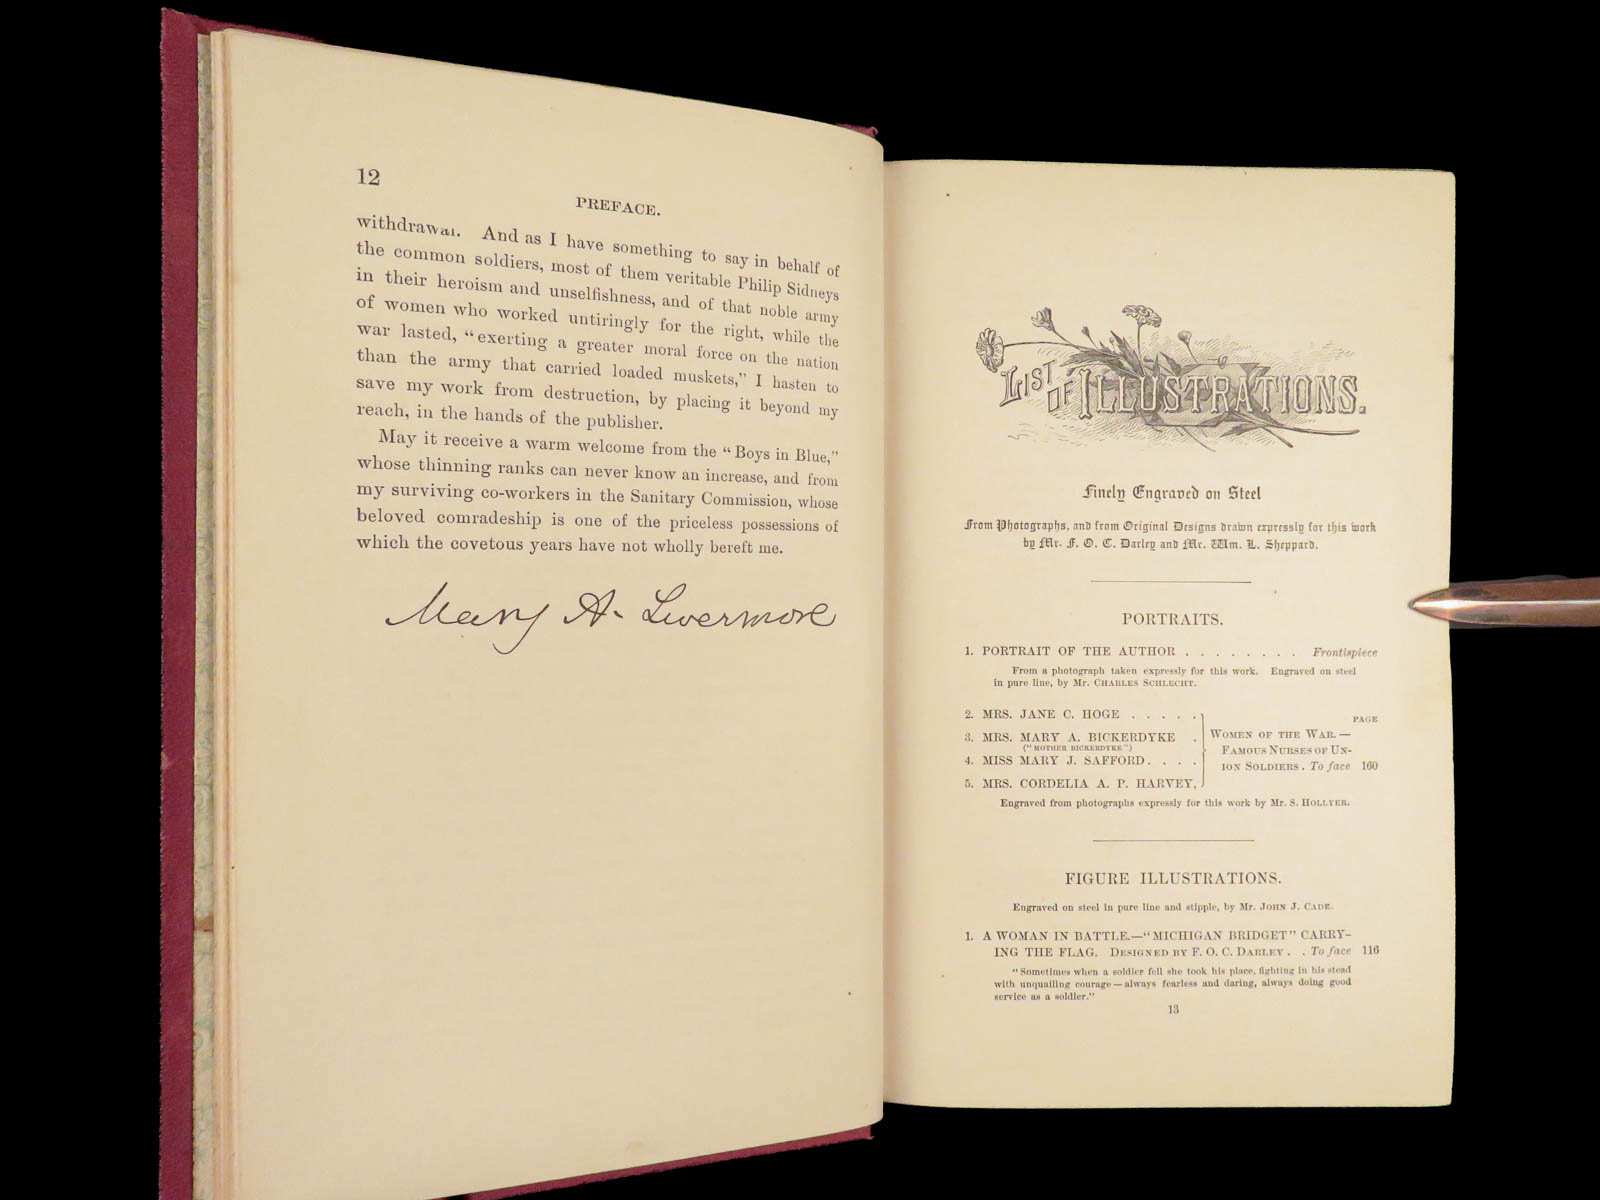 12
PREFACE.
withdrawal. And as I have something to say in behalf of
the common soldiers, most of them veritable Philip Sidneys
in their heroism and unselfishness, and of that noble army
of women who worked untiringly for the right, while the
war lasted, “exerting a greater moral force on the nation
than the army that carried loaded muskets,” I hasten to
save my work from destruction, by placing it beyond my
reach, in the hands of the publisher.
May it receive a warm welcome from the “Boys in Blue,”
whose thinning ranks can never know an increase, and from
my surviving co-workers in the Sanitary Commission, whose
beloved comradeship is one of the priceless possessions of
which the covetous years have not wholly bereft me.
Mary A. Livermore
LIST OF ILLUSTRATIONS.
Finely Engraved on Steel
From Photographs, and from Original Designs drawn expressly for this work
by Mr. F. O. C. Darley and Mr. Wm. L. Sheppard.
PORTRAITS.
1. PORTRAIT OF THE AUTHOR . . . . . . . . Frontispiece
From a photograph taken expressly for this work. Engraved on steel
in pure line, by Mr. CHARLES SCHLECHT.
2. MRS. JANE C. HOGE . . . . .
3. MRS. MARY A. BICKERDYKE .
(“MOTHER BICKERDYKE”)
4. MISS MARY J. SAFFORD . . . .
5. MRS. CORDELIA A. P. HARVEY,
PAGE
WOMEN OF THE WAR.—
FAMOUS NURSES OF UN-
ION SOLDIERS . To face 160
Engraved from photographs expressly for this work by Mr. S. HOLLYER.
FIGURE ILLUSTRATIONS.
Engraved on steel in pure line and stipple, by Mr. JOHN J. CADE.
1. A WOMAN IN BATTLE.—“MICHIGAN BRIDGET” CARRY-
ING THE FLAG. DESIGNED BY F. O. C. DARLEY . . To face 116
“Sometimes when a soldier fell she took his place, fighting in his stead
with unquailing courage — always fearless and daring, always doing good
service as a soldier.”
13